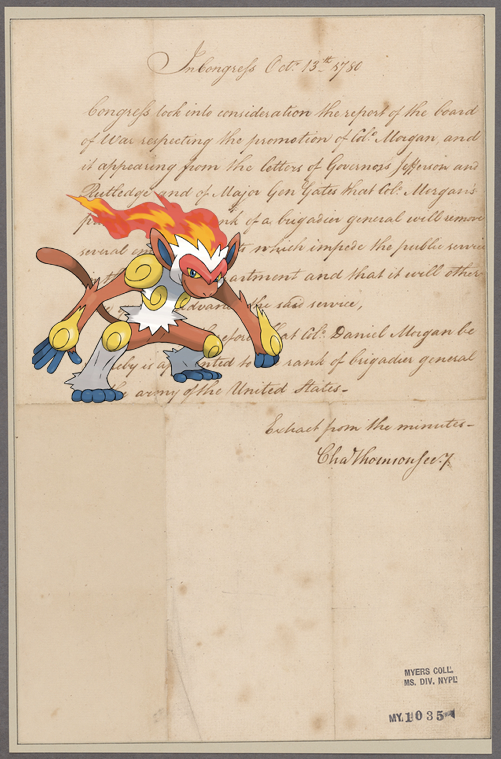 In Congress Octr. 13th. 1780
Congress took into consideration the report of the board
of War respecting the promotion of Colo. Morgan, and
it appearing from the letters of Governors Jefferson and
Rutledge and of Major Gen Gates that Col. Morgan's
of a brigadier general will remove
several which impede the public service
artment and that it will other
advan the said service,
that Col. Daniel Morgan be
eby is nted to rank of brigadier general
army of the United States.
Extract from the minutes
Cha Thomson Secy
MYERS COLL.
MS. DIV. NYPL
MY.1035